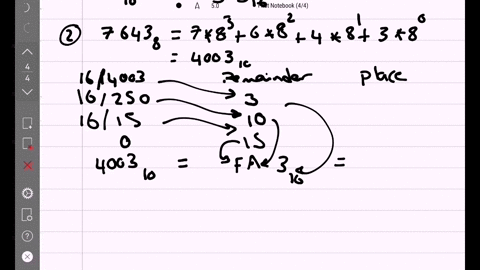 10
5.0 Notebook (4/4)
② 7643₈ = 7*8³ + 6*8² + 4*8¹ + 3*8⁰
= 4003₁₀
16/4003 remainder place
16/250 3
16/15 10
0 15
4003₁₀ = FA3₁₆ =
4
4